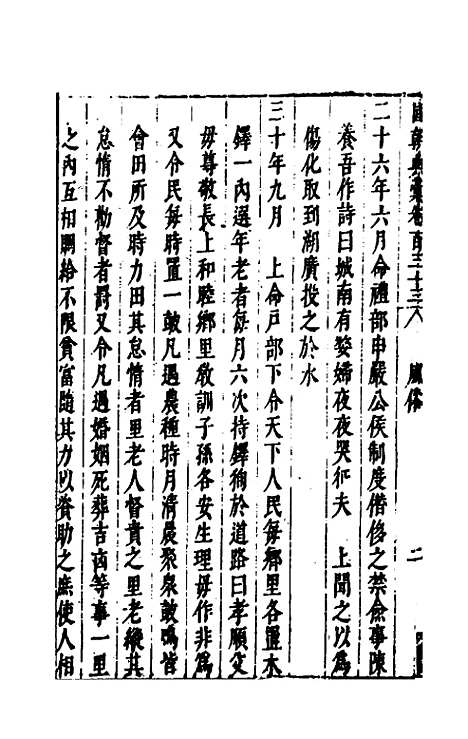 國朝典彙卷一百三十三 風俗 二
二十六年六月命禮部申嚴公侯制度僭侈之禁僉事陳
養吾作詩曰城南有嫠婦夜夜哭征夫 上聞之以爲
傷化取到湖廣投之於水
三十年九月 上命戸部下令天下人民每鄉里各置木
鐸一內選年老者每月六次持鐸徇於道路曰孝順父
母尊敬長上和睦鄉里教訓子孫各安生理毋作非爲
又令民每時置一鼓凡遇農種時月清晨聚衆鼓鳴皆
會田所及時力田其怠惰者里老人督責之里老縱其
怠惰不勸督者罰又令凡遇婚姻死葬吉凶等事一里
之內互相賙給不限貧富隨其力以資助之庶使人相